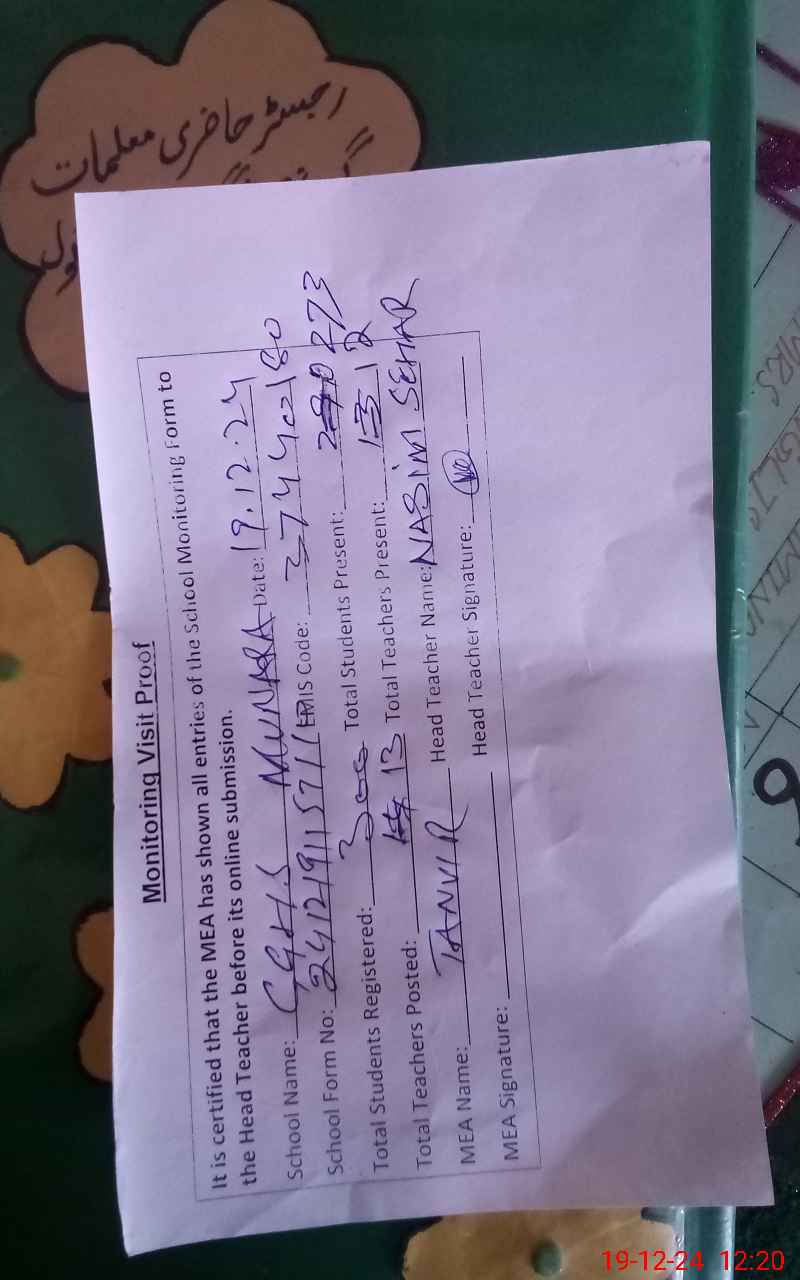 رجسٹر حاضری معلمات
Monitoring Visit Proof
It is certified that the MEA has shown all entries of the School Monitoring Form to
the Head Teacher before its online submission.
School Name: GGHS MUNARA Date: 19.12.24
School Form No: 241219115711 EMIS Code: 37440180
Total Students Registered: 300 Total Students Present: 273
Total Teachers Posted: 13 Total Teachers Present: 12
MEA Name: TANVIR Head Teacher Name: NASIM SEHAR
MEA Signature: Head Teacher Signature:
MRS.
9
19-12-24 12:20